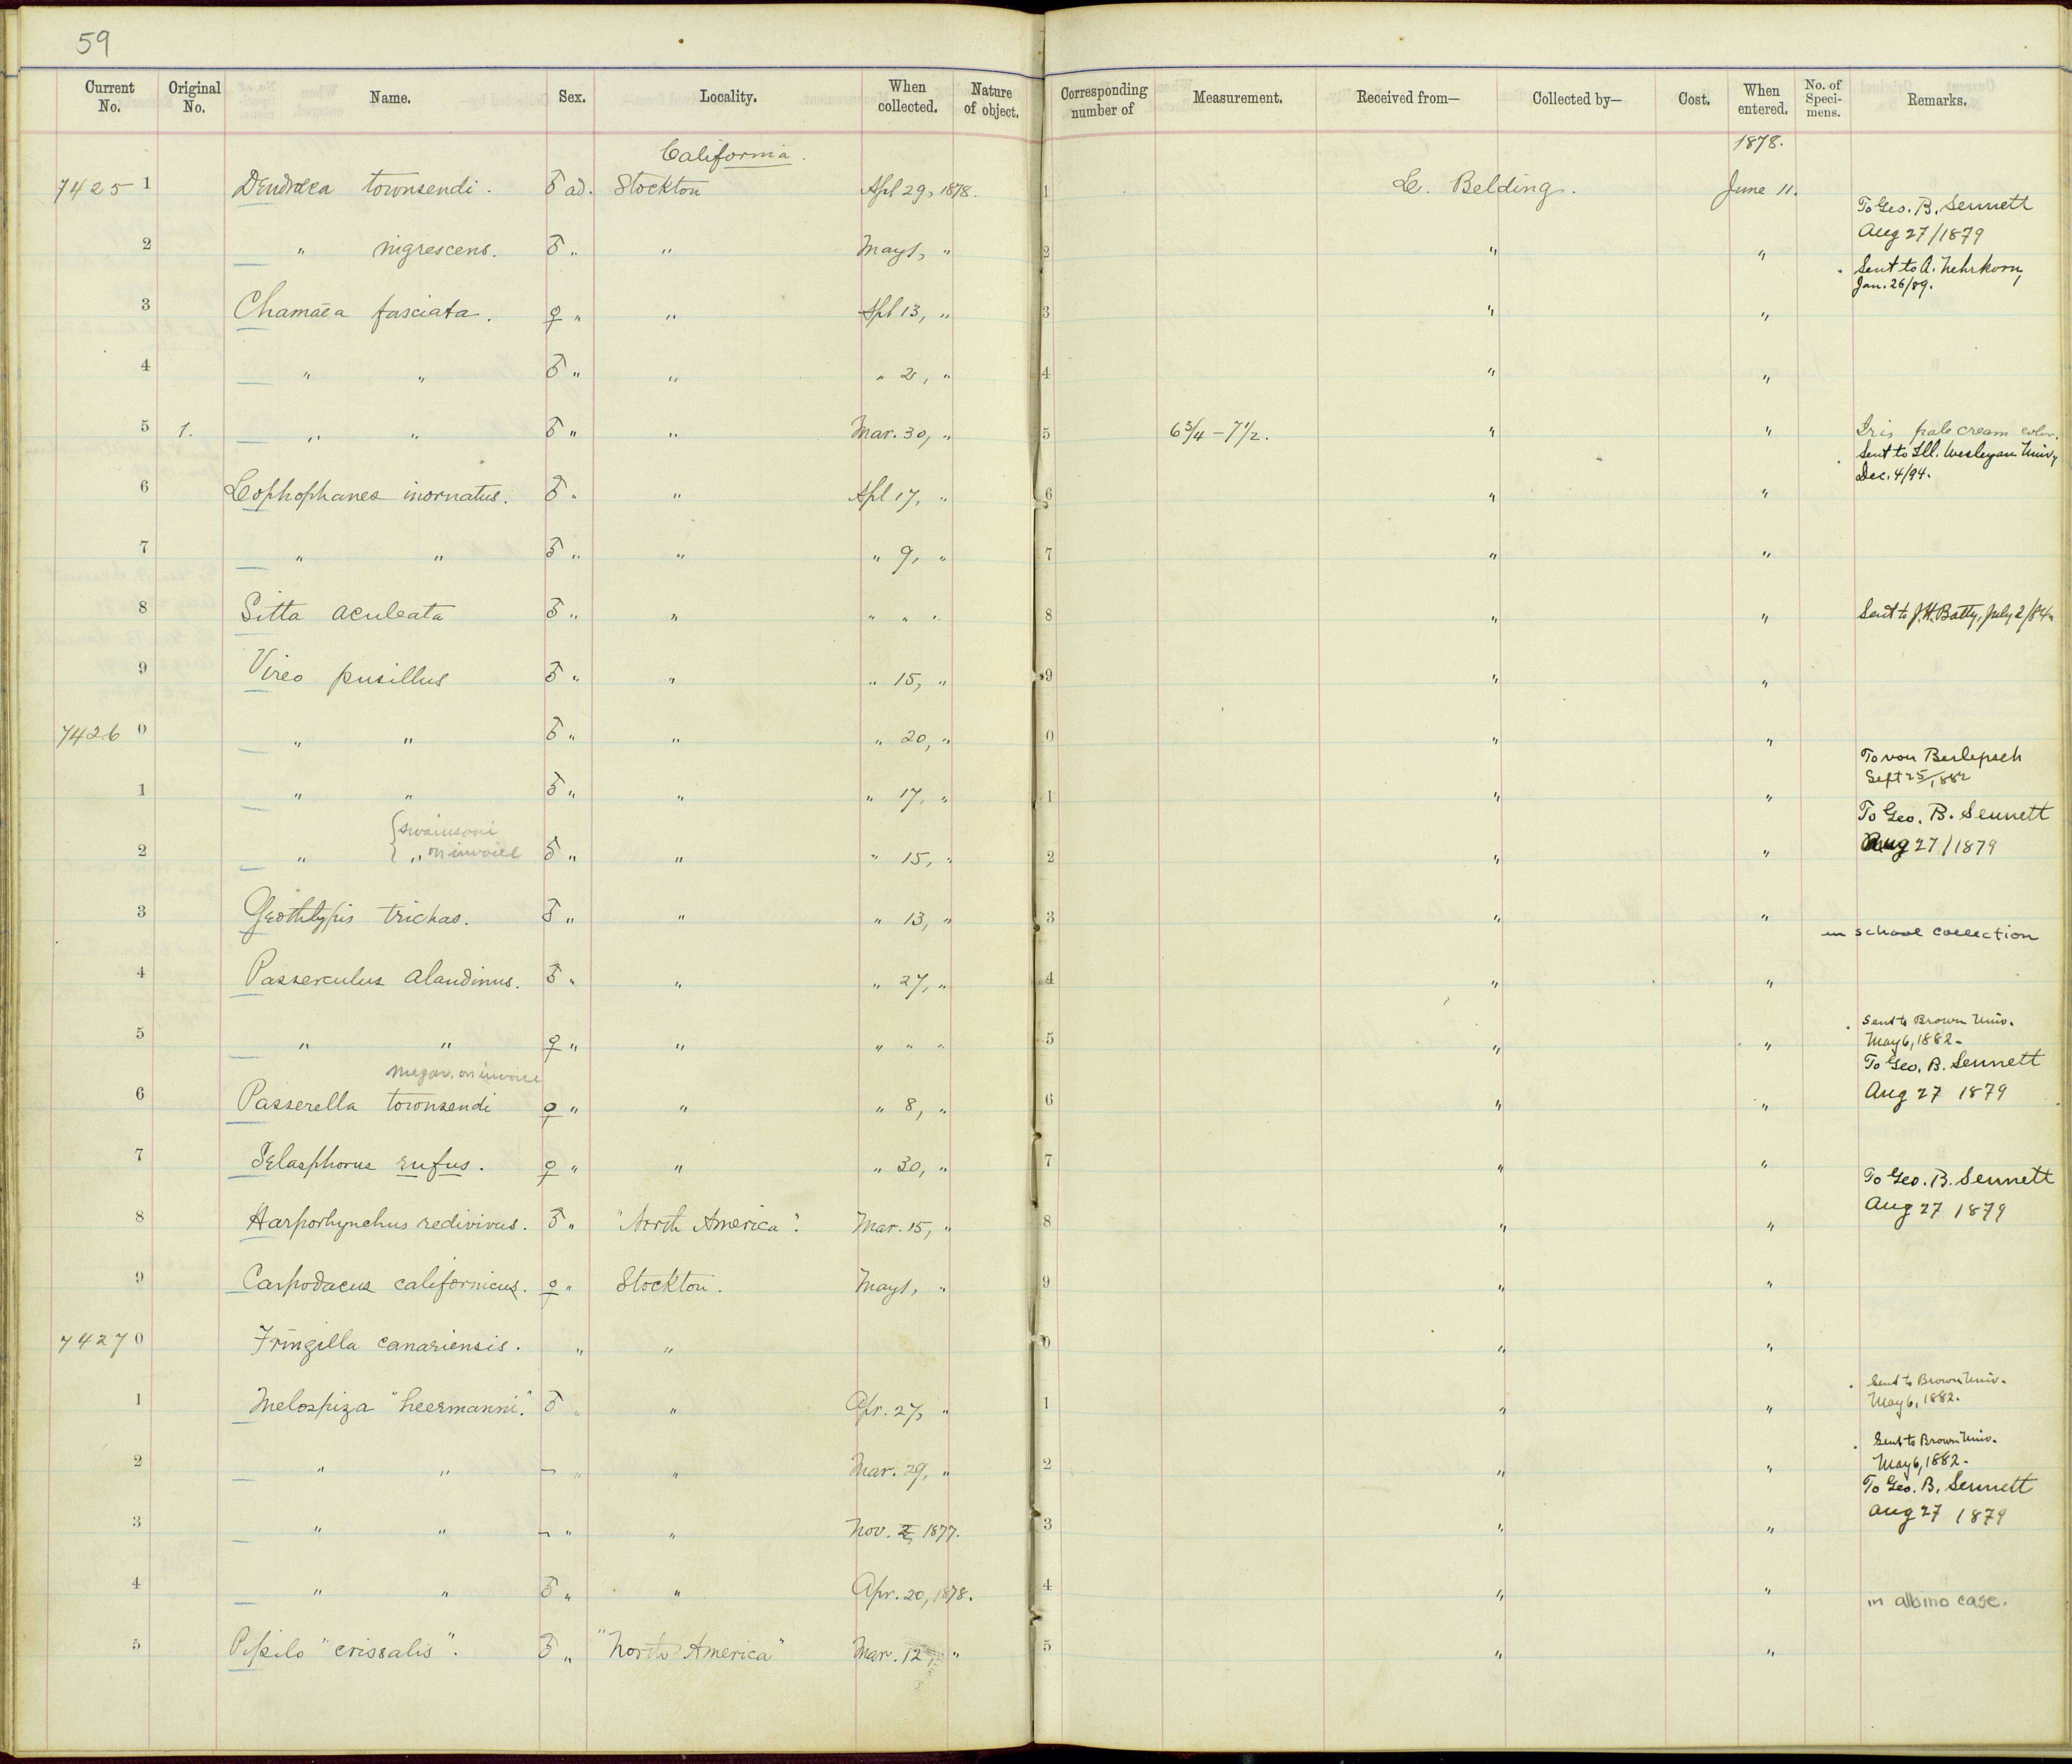 59
Current No. Original No. Name. Sex. Locality. When collected. Nature of object. Corresponding number of Measurement. Received from— Collected by— Cost. When entered. No. of Speci-mens. Remarks.
California. 1878.
74251 Dendroeca townsendi. ♂ ad. Stockton Apl 29, 1878. 1 L. Belding. June 11.
To Geo. B. Sennett
Aug 27/1879
2 " nigrescens. ♂ " " May 1, " 2 " "
Sent to A. Nehrkorn,
Jan. 26/89.
3 Chamaea fasciata. ♀ " " Apl 13, " 3 " "
4 " " ♂ " " " 2, " 4 " "
5 1. " " ♂ " " Mar. 30, " 5 6 3/4 – 7 1/2. " " Iris pale cream color.
Sent to Ill. Wesleyan Univ,
Dec. 4/94.
6 Lophophanes inornatus. ♂ " " Apl 17, " 6 " "
7 " " ♂ " " " 9, " 7 " "
8 Sitta aculeata ♂ " " " " " 8 " " Sent to J.H. Batty, July 2/84.
9 Vireo pusillus ♂ " " " 15, " 9 " "
74260 " " ♂ " " " 20, " 0 " "
To von Berlepsch
Sept 25/1882
1 " " ♂ " " " 17, " 1 " "
{swainsoni
To Geo. B. Sennett
2 " " on invoice ♂ " " " 15, " 2 " " Aug 27/1879
3 Geothlypis trichas. ♂ " " " 13, " 3 " "
in school collection
4 Passerculus alaudinus. ♂ " " " 27, " 4 " "
Sent to Brown Univ.
May 6, 1882.
5 " " ♀ " " " " " 5 " "
megar. on invoice
To Geo. B. Sennett
Aug 27 1879
6 Passerella townsendi ♀ " " " 8, " 6 " "
7 Selasphorus rufus. ♀ " " " 30, " 7 " "
To Geo. B. Sennett
Aug 27 1879
8 Harporhynchus redivivus. ♂ " "North America". Mar. 15, " 8 " "
9 Carpodacus californicus. ♀ " Stockton. May 1, " 9 " "
74270 Fringilla canariensis. " " 0 " "
Sent to Brown Univ.
May 6, 1882.
1 Melospiza "heermanni." ♂ " " Apr. 27, " 1 " "
Sent to Brown Univ.
May 6, 1882.
2 " " – " " Mar. 29, " 2 " "
To Geo. B. Sennett
Aug 27 1879
3 " " – " " Nov. 2, 1877. 3 " "
4 " " ♂ " " Apr. 20, 1878. 4 " "
in albino case.
5 Pipilo "crissalis". ♂ " "North America" Mar. 12, " 5 " "